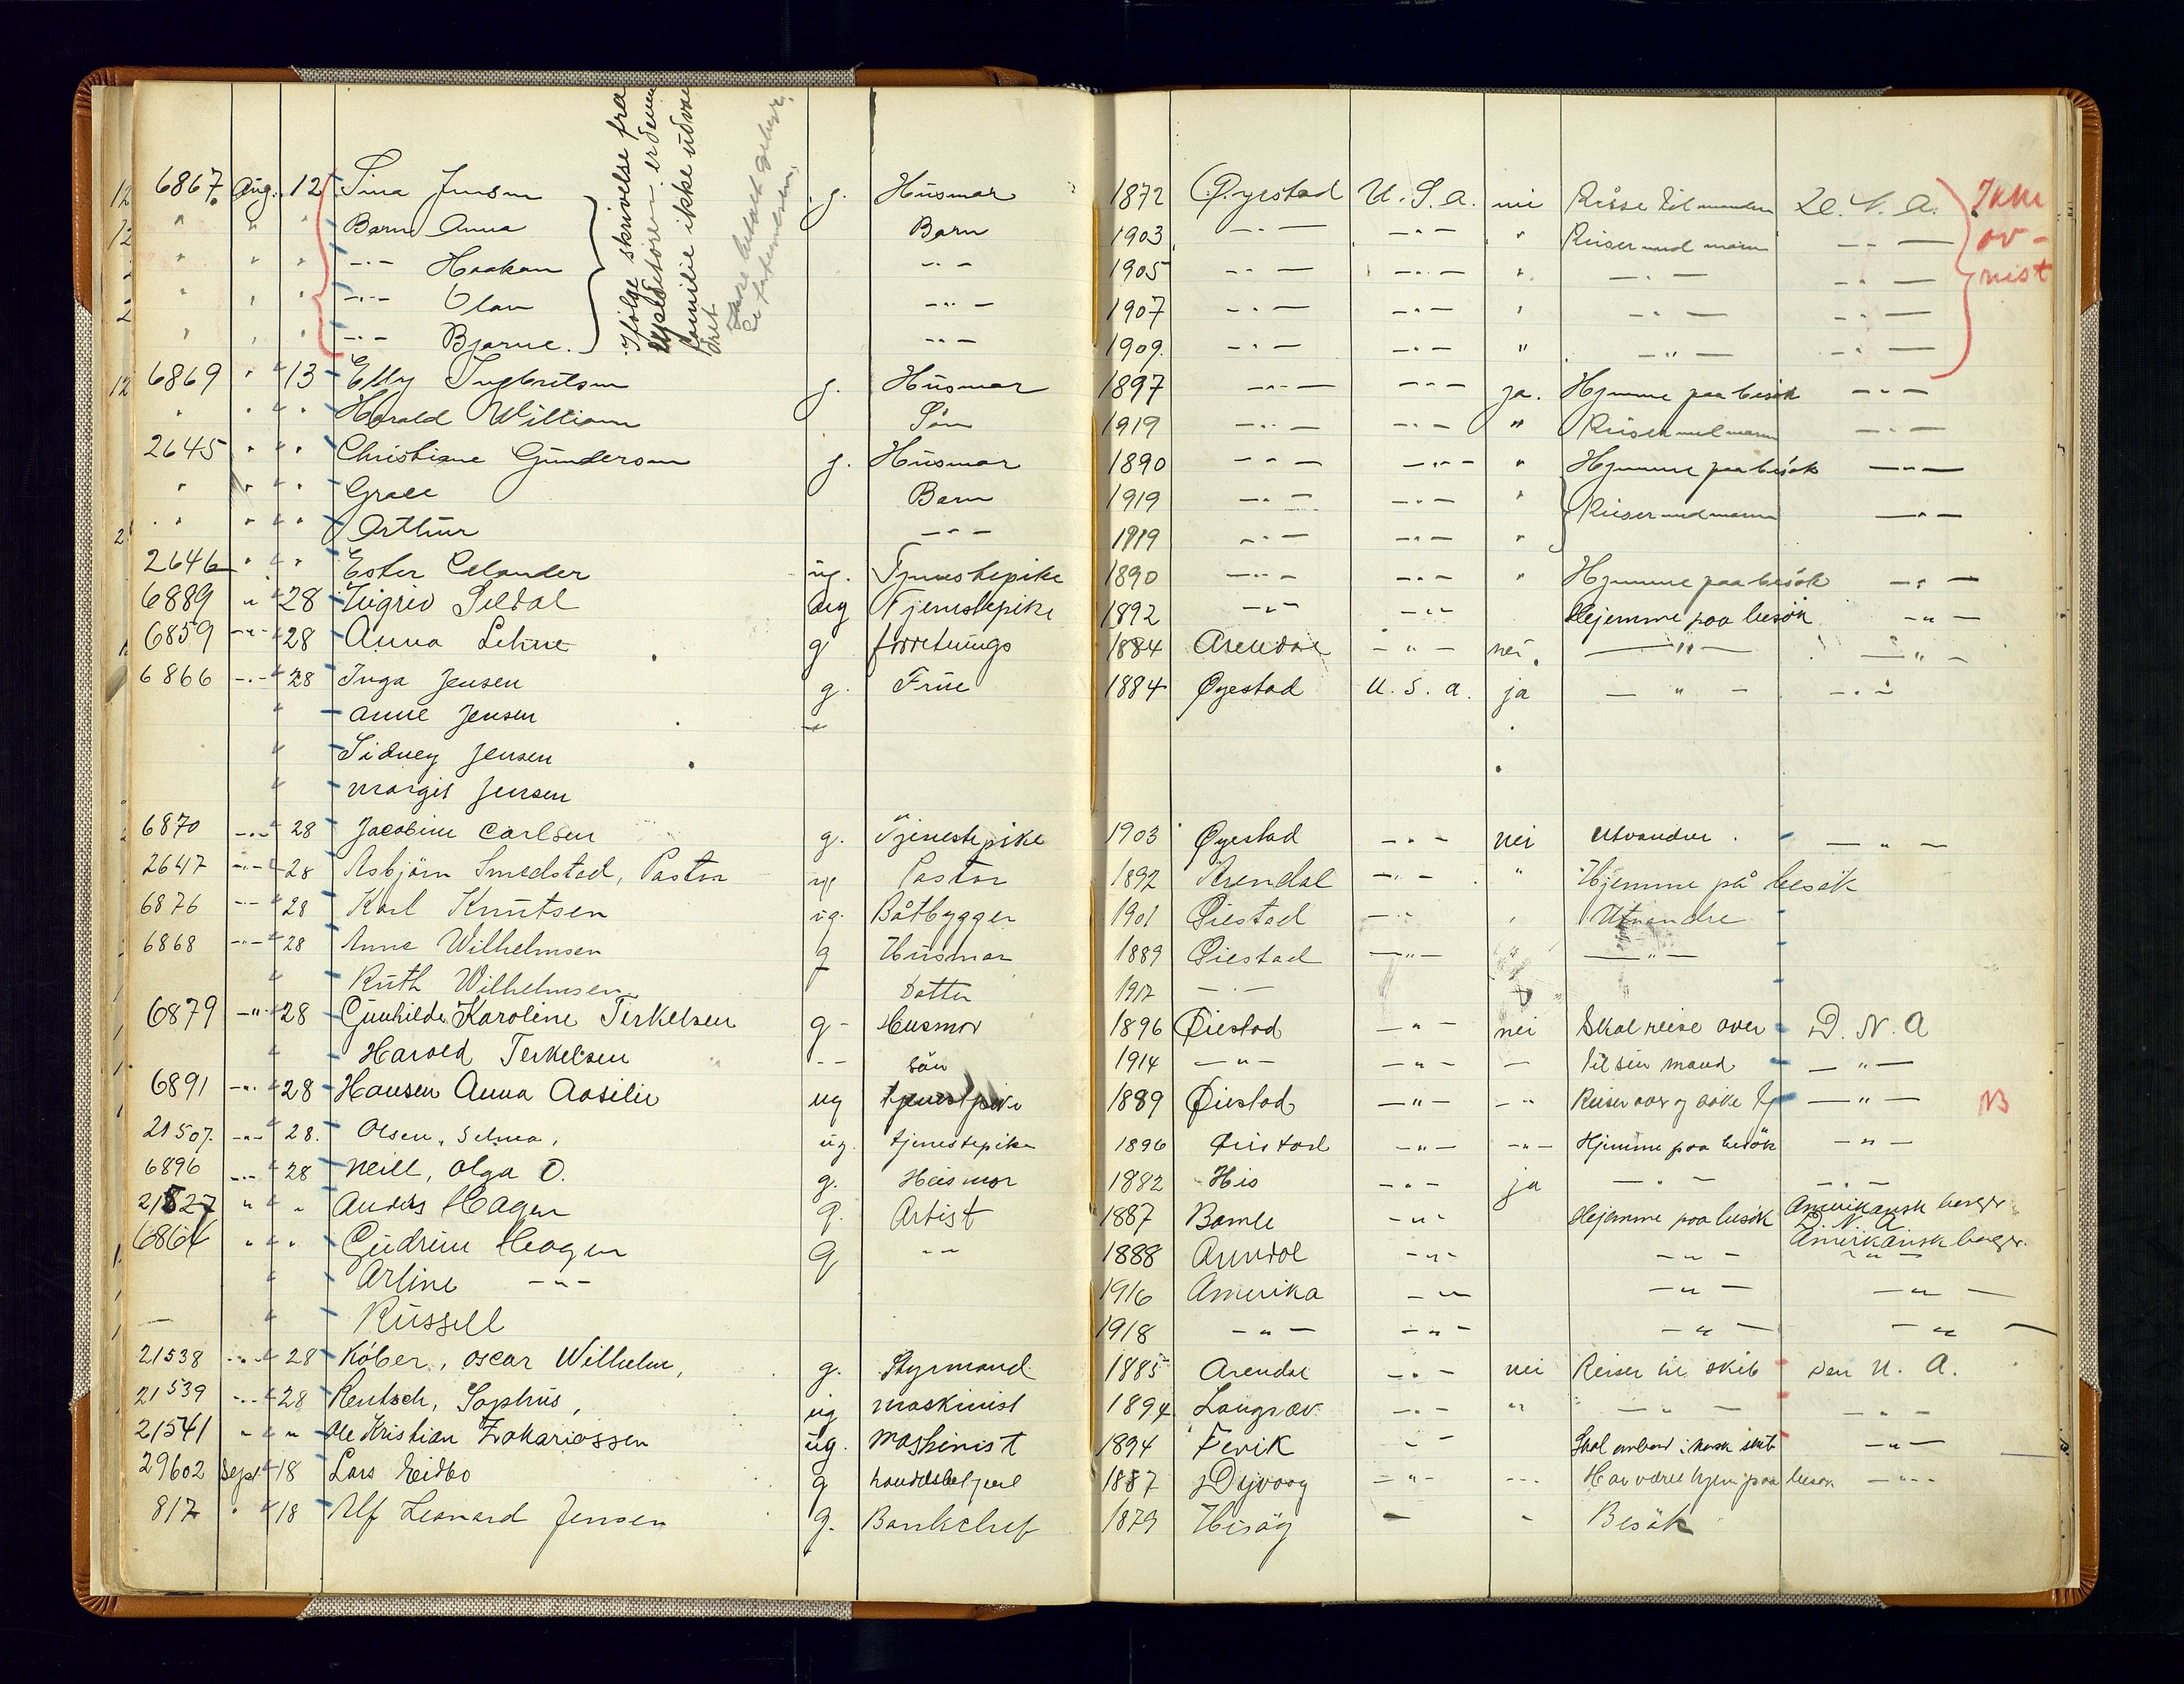 12 6867. Aug. 12 Sina Jensen g. Husmor 1872 Øyestad U.S.A. nei Reise til manden D.N.A.
12 " " " Barn Anna Barn 1903 -"- -"- " Reiser med mann -"-
" " " -"- Haakon -"- 1905 -"- -"- " -"- -"-
2 " " " -"- Olav -"- 1907 -"- -"- " -"- -"-
" " " -"- Bjarne. -"- 1909. -"- -"- " -"- -"-
Ifølge skrivelse fra
expeditøren er denne
familie ikke udvan
dret
Ikke
av-
reist
12 6869 " " 13 Elly Ingbritsen g. Husmor 1897 -"- -"- ja. Hjemme paa besök -"-
" " " Harald William Sön 1919 -"- -"- " Reiser med mann -"-
2645 " " " Christiane Gundersen g. Husmor 1890 -"- -"- " Hjemme paa besök -"-
" " " " Grace Barn 1919 -"- -"- " Reiser med mann -"-
" " " " Arthur -"- 1919 -"- -"- "
2646 " " " Ester Celander ug. Tjenestepike 1890 -"- -"- " Hjemme paa besök -"-
6889 " " 28 Sigrid Seldal ug Tjenestepike 1892 -"- -"- Hejemme paa besök -"-
6859 -"- " 28 Anna Lehne g forretnings 1884 Arendal -"- nei. -"- -"-
6866 -"- " 28 Inga Jensen g. Frue 1884 Øyestad U.S.A. ja -"- -"-
" Anne Jensen -"-
" Sidney Jensen
" Margit Jensen
6870 -"- 28 Jacobine Carlsen g. Tjenestepike 1903 Øyestad -"- nei Utvandrer. -"-
2647 -"- 28 Asbjørn Smedstad, Pastor ug Pastor 1892 Arendal -"- " Hjemme på besök
6876 -"- " 28 Karl Knutsen ug. Båtbygger 1901 Øiestad -"- " Utvandre
6868 -"- " 28 Anna Wilhelmsen g Husmor 1889 Øiestad -"- " -"-
" Ruth Wilhelmsen Datter 1917 -"-
6879 -"- " 28 Gunhilde Karoline Terkelsen g- Husmor 1896 Øiestad -"- nei Skal reise over D.N.A
" Harold Terkelsen -- Sön 1914 -"- -"- - til sin mand -"-
6891 -"- " 28 Hansen Anna Aasilie ug tjenestpike 1889 Øiestad -"- -" Reiser over og søke hj -"- NB
21507. -"- " 28. Olsen, Selma, ug. tjenestepike 1896 Øiestad -"- -"- Hjemme paa besök -"-
6896 -"- " 28 Neill, Olga O. g. Husmor 1882 His -"- ja -"- -"-
21527 " " Anders Hagen g. Artist 1887 Bamle -"- Hejemme paa besök Amerikansk borger.
D.N.A
6864 " " " Gudrun Hagen g -"- 1888 Arendal -"- -"- Amerikansk borger. -"-
" Arline -"- 1916 Amerika -"- -"- -"-
- " Russell 1918 -"- -"- -"- -"-
21538 -"- " 28 Köber, Oscar Wilhelm, g. Styrmand 1885 Arendal -"- nei Reiser til skib Den N. A.
21539 -"- " 28 Rentsch, Sophus, ug maskinist 1894 Langsæv -"- -"- -"- -"-
21541 " " Ole Kristian Zakariassen ug. maskinist 1894 Fevik -"- Skal ombord i norsk skib -"-
29602 Sept " 18 Lars Eidbo g 1887 Dypvaag -"- -"- Har været hjem paa besøk -"-
817 " " 18 Alf Leonard Jensen g. Bankchef 1879 Hisöy - - Besök